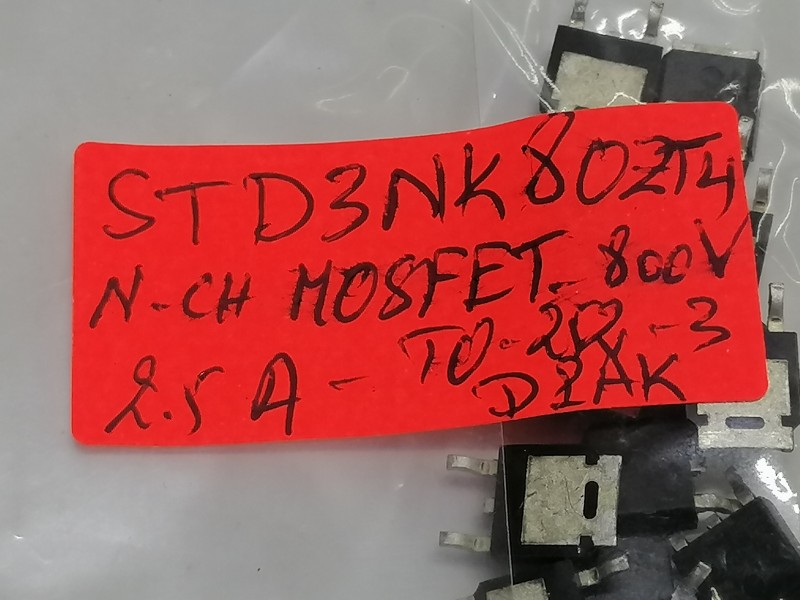 STD3NK80ZT4
N-CH MOSFET- 800V
2.5 A - TO-252 -3
D2AK